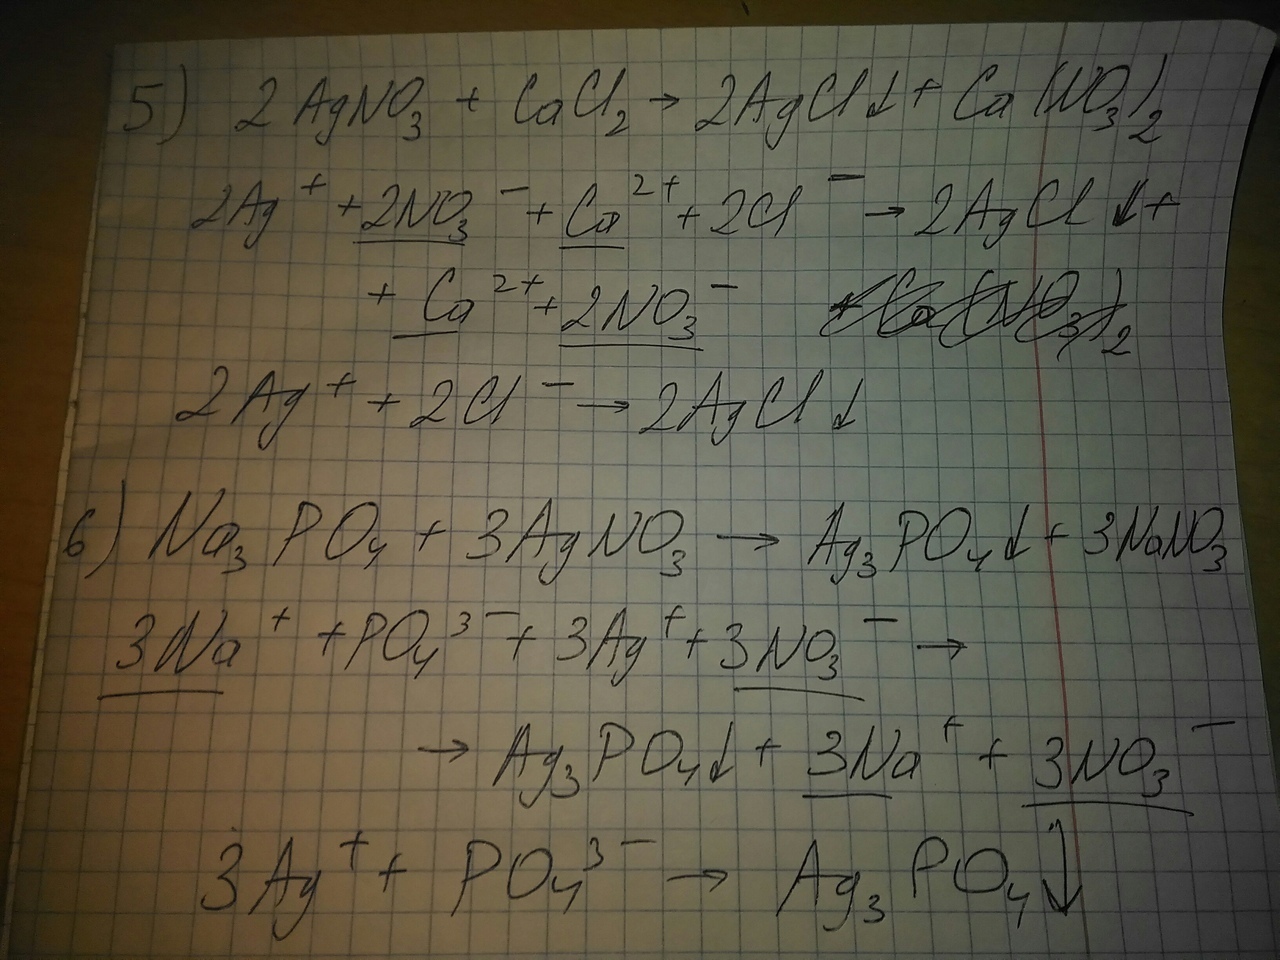 5) 2AgNO₃ + CaCl₂ → 2AgCl↓ + Ca(NO₃)₂
2Ag⁺ + 2NO₃⁻ + Ca²⁺ + 2Cl⁻ → 2AgCl↓ +
+ Ca²⁺ + 2NO₃⁻ + Ca(NO₃)₂
2Ag⁺ + 2Cl⁻ → 2AgCl↓
6) Na₃PO₄ + 3AgNO₃ → Ag₃PO₄↓ + 3NaNO₃
3Na⁺ + PO₄³⁻ + 3Ag⁺ + 3NO₃⁻ →
→ Ag₃PO₄↓ + 3Na⁺ + 3NO₃⁻
3Ag⁺ + PO₄³⁻ → Ag₃PO₄↓